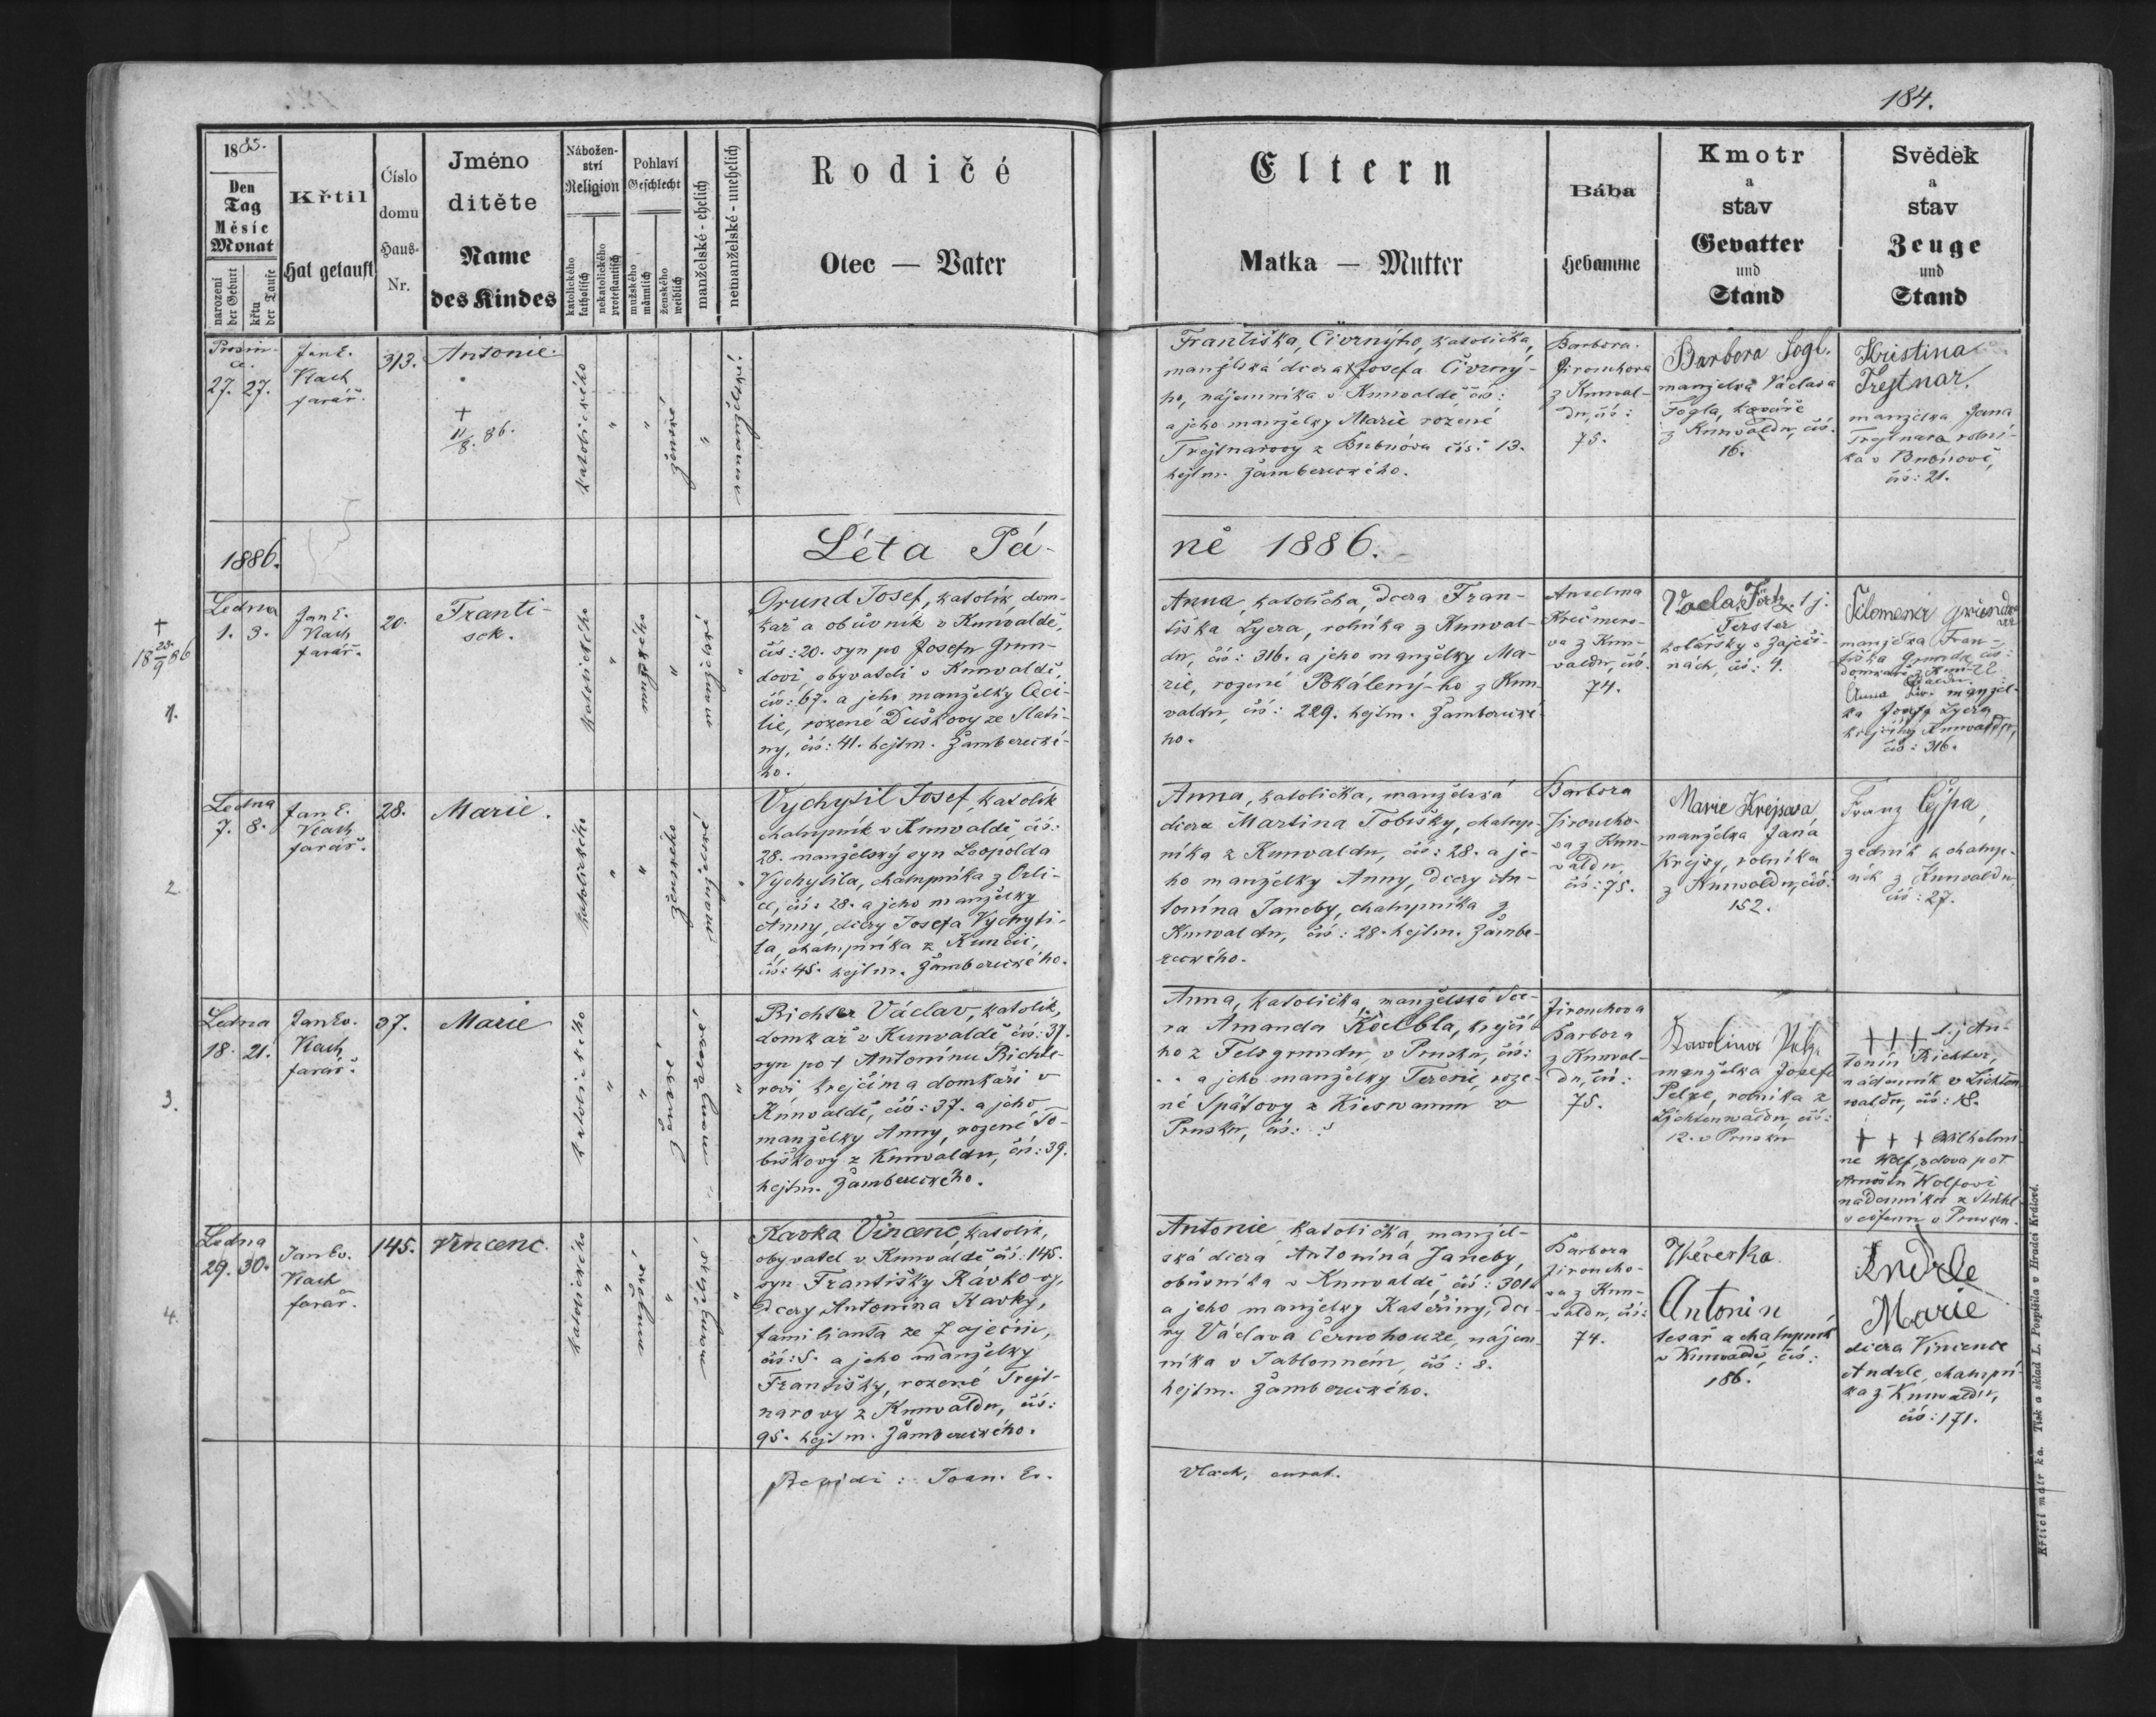 184.
1885.
Den
Tag
Měsíc
Monat
narození
der Geburt
křtu
der Taufe
Křtil
Hat getauft
Číslo
domu
Haus-
Nr.
Jméno
ditěte
Name
des Kindes
Nábožen-
ství
Religion
katolického
katholisch
nekatolického
protestantisch
Pohlaví
Geschlecht
mužského
männlich
ženského
weiblich
manželské - ehelich
nemanželské - unehelich
Rodičé
Otec — Vater
Eltern
Matka — Mutter
Bába
Hebamme
Kmotr
a
stav
Gevatter
und
Stand
Svědek
a
stav
Zeuge
und
Stand
Prosin-
ce.
27. 27.
Jan E.
Vlach
farář.
313.
Antonie.
+
11/8. 86.
katolického
"
"
ženské
"
nemanželské.
Františka, Čivrnýho, katolička,
manželská dcera Josefa Čivrný-
ho, nájemníka v Kunvaldě čís:
a jeho manželky Marie rozené
Trejtnarovy z Bubnova čís: 13.
hejtm. Žambereckého.
Barbora
Jirouchova
z Kunval-
du, čís:
75.
Barbora Fogl.
manželka Václava
Fogla, kováře
z Kunvaldu, čís.
16.
Kristina
Trejtnar.
manželka Jana
Trejtnara rolní-
ka v Bubnově,
čís: 21.
1886.
Léta Pá-
ně 1886.
+
23/9
18 86
1.
Ledna
1. 3.
Jan E.
Vlach
farář.
20.
Franti-
sek.
katolického
"
mužského
"
manželské
"
Grund Josef, katolík, dom-
kář a obuvník v Kunvaldě,
čís: 20. syn po Josefu Grun-
dovi, obyvateli v Kunvaldě,
čís: 67. a jeho manželky Ceci-
lie, rozené Duškovy ze Slati-
ny, čís: 41. hejtm. Žamberecké-
ho.
Anna, katolička, dcera Fran-
tiška Lyera, rolníka z Kunval-
du, čís: 316. a jeho manželky Ma-
rie, rozené Pokálený-ho z Kun-
valdu, čís: 229. hejtm. Žamberecké-
ho.
Anselma
Krečmero-
va z Kun-
valdu, čís.
74.
manželka Fran-
tiška Grunda čís:
22.
Anna
ka Josefa Lyera
krejčího Kunvaldu,
čís: 316.
2.
Ledna
7. 8.
Jan E.
Vlach
farář.
28.
Marie.
katolického
"
"
ženského
manželské
"
Vychytil Josef, katolík
chalupník v Kunvaldě, čís:
28. manželský syn Leopolda
Vychytila, chalupníka z Orli-
ce, čís: 28. a jeho manželky
Anny, dcery Josefa Vychyti-
la, chalupníka z Kunčic,
čís: 45. hejtm. Žambereckého.
Anna, katolička, manželská
dcera Martina Tobišky, chalup-
níka z Kunvaldu, čís: 28. a je-
ho manželky Anny, dcery An-
tonína Janeby, chalupníka z
Kunvaldu, čís: 28. hejtm. Žambe-
reckého.
Barbora
Jiroucho-
va z Kun-
valdu,
čís: 75.
Marie Krejsova
manželka Jana
Krejsy, rolníka
z Kunvaldu, čís:
152.
Franz Čejpa,
zedník a chalup-
ník z Kunvaldu,
čís: 27.
3.
Ledna
18. 21.
Jan Ev.
Vlach
farář.
37.
Marie
katolického
"
"
ženské
manželské
"
Richter Václav, katolík,
domkář v Kunvaldě čís: 37.
syn po + Antonínu Richte-
rovi krejčím a domkáři v
Kunvaldě, čís: 37. a jeho
manželky Anny, rozené To-
biškovy z Kunvaldu, čís: 39.
hejtm. Žambereckého.
Anna, katolička, manželská dce-
ra Amanda Köelbla, krejčí-
ho z Felsgrundu, v Prusku, čís:
.. a jeho manželky Terezie, roze-
né Spätovy z Kieswamm v
Prusku, čís: ?
Jirouchova
Barbora
z Kunval-
du, čís:
75.
Karolina Pelz.
manželka Josefa
Pelze, rolníka z
Lichtenwaldu, čís:
12. v Prusku
+++ 1. j. An-
tonín Richter,
nádenník v Lichten-
waldu, čís: 18.
+++ Wilhelmi-
ne Wolf, vdova po +
Arnoštu Wolfovi
nádenníku
v Prusku.
4.
Ledna
29. 30.
Jan Ev.
Vlach
farář.
145.
Vincenc.
katolického
"
mužské
"
manželské
"
Kavka Vincenc, katolík,
obyvatel v Kunvaldě čís: 145.
syn Františky Kávko-vy,
dcery Antonína Kavky,
familianta ze Zaječin,
čís: 5. a jeho manželky
Františky, rozené Trejt-
narovy z Kunvaldu, čís:
95. hejtm. Žambereckého.
Antonie, katolička, manžel-
ská dcera Antonína Janeby,
obuvníka v Kunvaldě, čís: 301.
a jeho manželky Kateřiny, dce-
ry Václava Černohouze, nájem-
níka v Jablonném, čís: 8.
hejtm. Žambereckého.
Barbora
Jiroucho-
va z Kun-
valdu, čís:
74.
Večerka
Antonin
tesař a chalupník
v Kunvaldě, čís:
186.
Andrle
Marie
dcera Vincence
Andrle, chalupní-
ka z Kunvaldu,
čís: 171.
Revidi: Joan. Ev.
Vlach, curat.
Křticí matrika. Tisk a sklad L. Pospíšila v Hradci Králové.